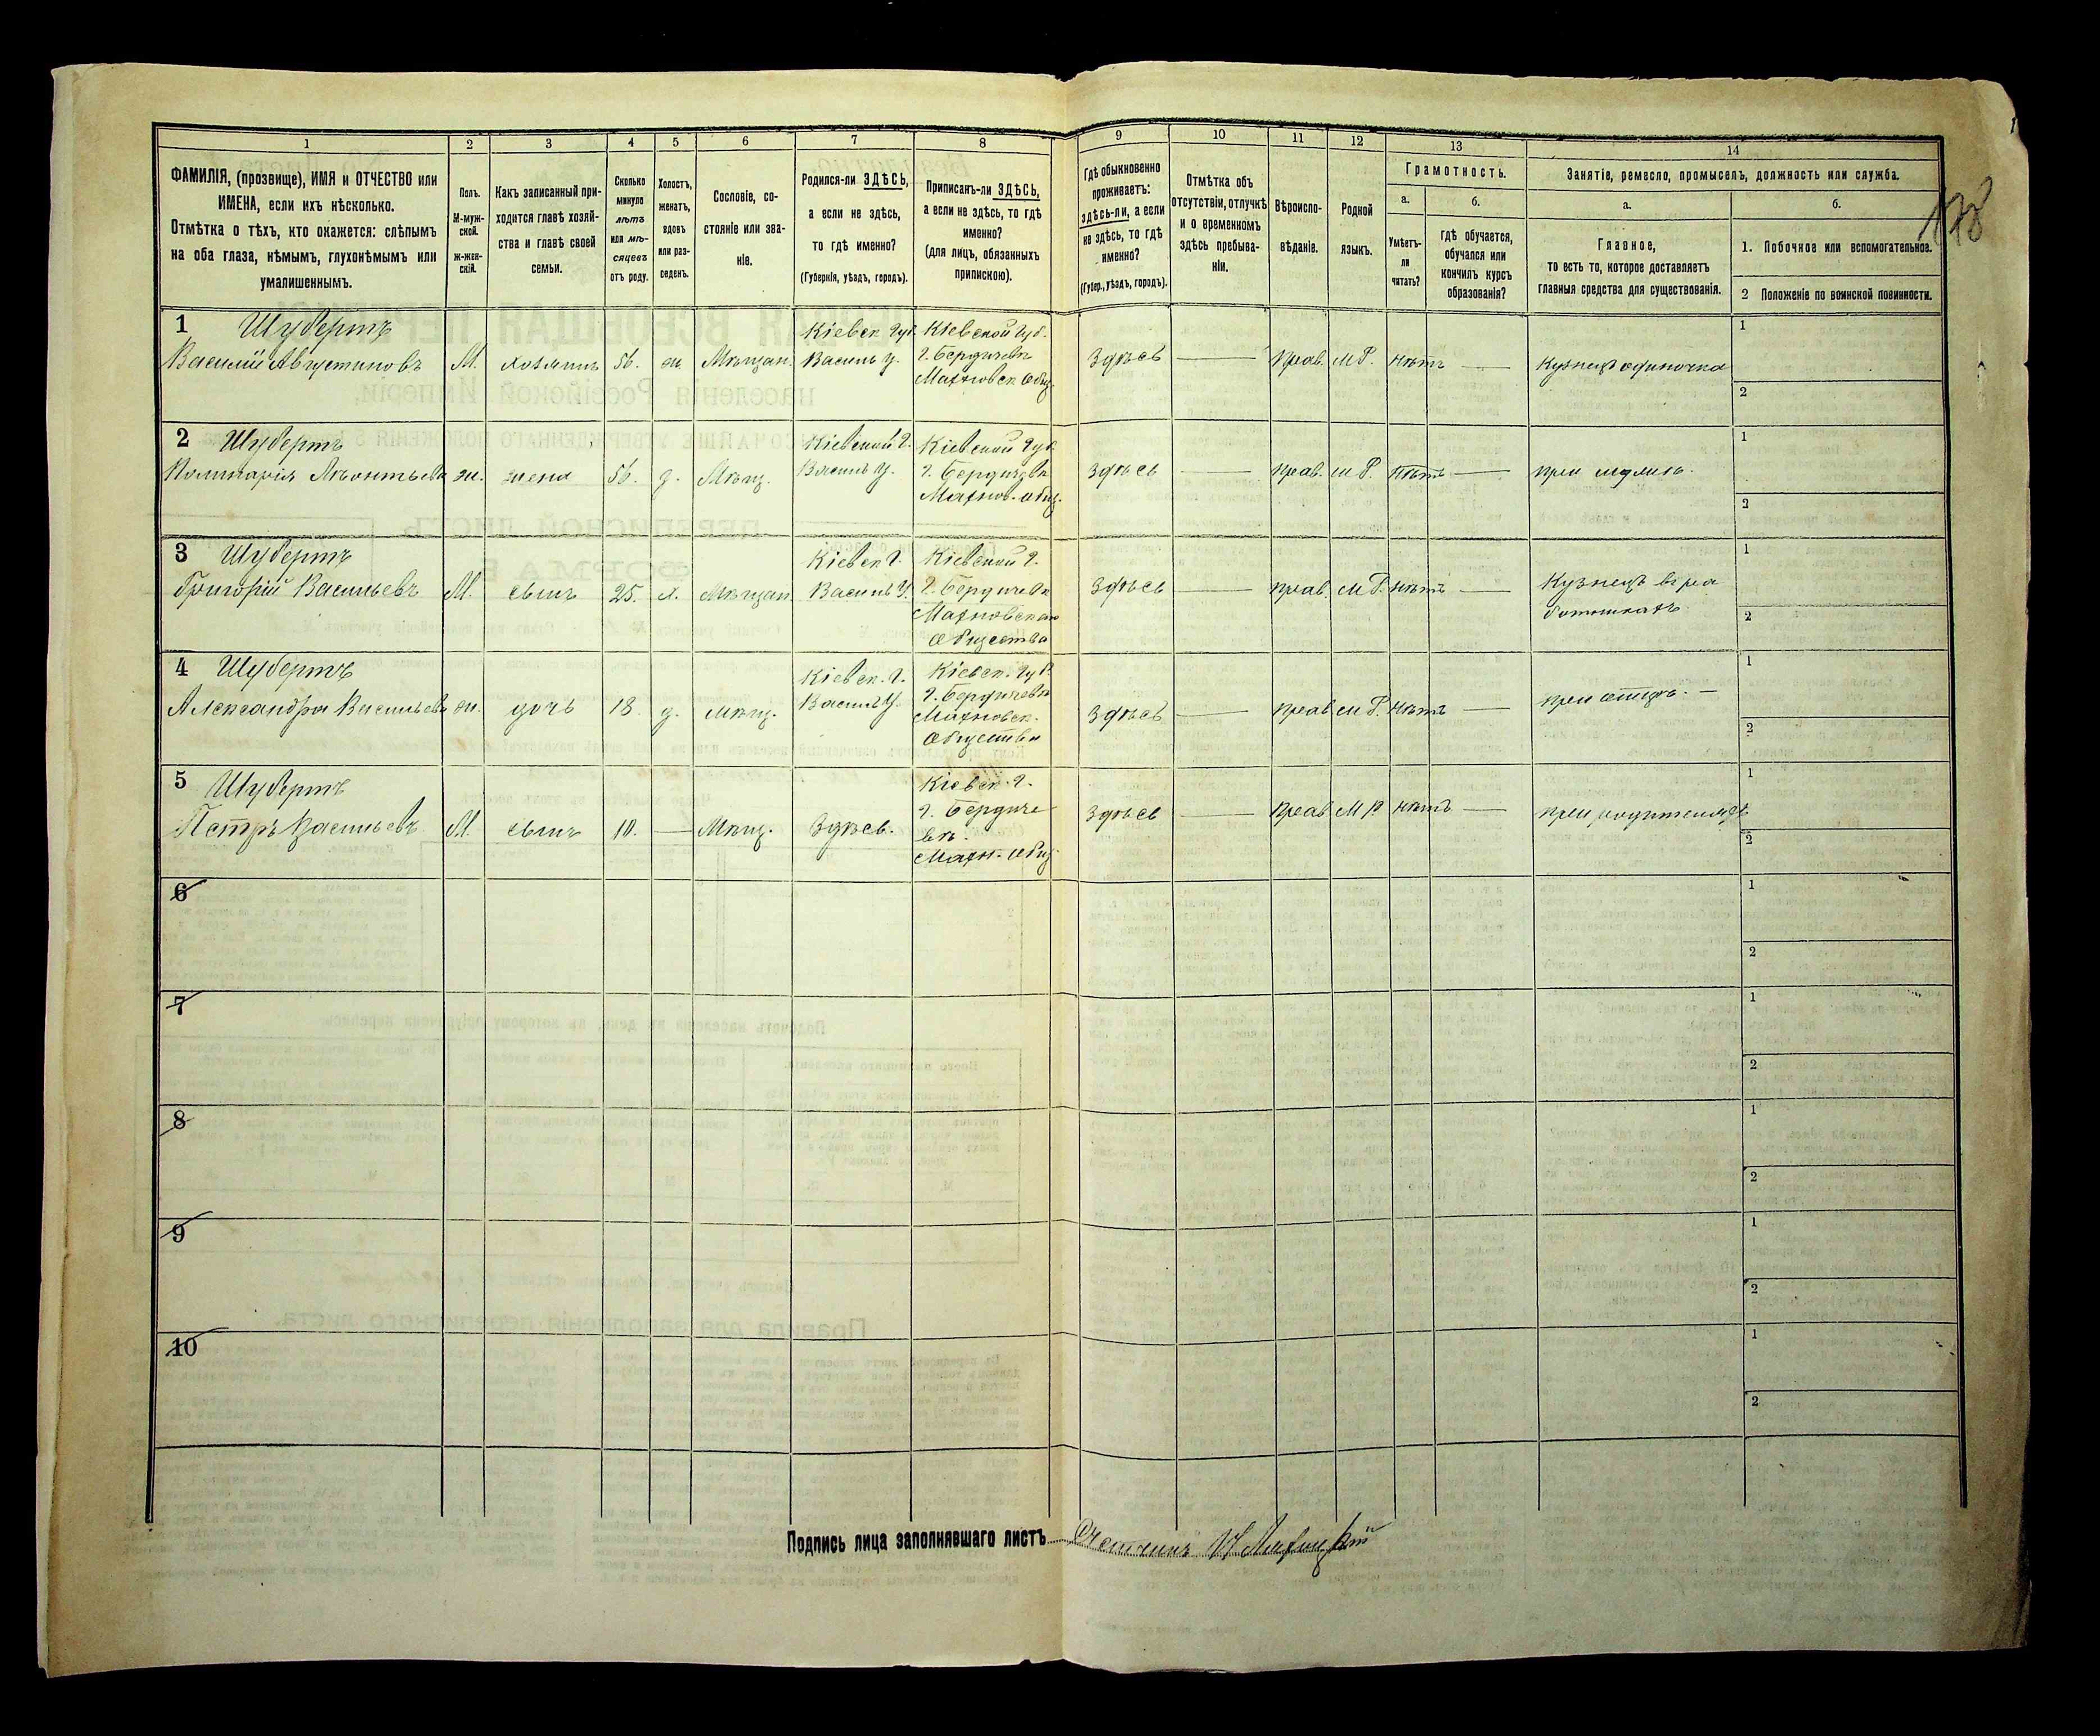 1 2 3 4 5 6 7 8 9 10 11 12 13 14
ФАМИЛІЯ, (прозвище), ИМЯ и ОТЧЕСТВО или
ИМЕНА, если ихъ нѣсколько.
Отмѣтка о тѣхъ, кто окажется: слѣпымъ
на оба глаза, нѣмымъ, глухонѣмымъ или
умалишеннымъ.
Полъ.
М-муж-
ской.
ж-жен-
скій.
Какъ записанный при-
ходится главѣ хозяй-
ства и главѣ своей
семьи.
Сколько
минуло
лѣтъ
или мѣ-
сяцевъ
отъ роду.
Холостъ,
женатъ,
вдовъ
или раз-
веденъ.
Сословіе, со-
стояніе или зва-
ніе.
Родился-ли ЗДѢСЬ,
а если не здѣсь,
то гдѣ именно?
(Губернія, уѣздъ, городъ).
Приписанъ-ли ЗДѢСЬ,
а если не здѣсь, то гдѣ
именно?
(для лицъ, обязанныхъ
припискою).
Гдѣ обыкновенно
проживаетъ:
здѣсь-ли, а если
не здѣсь, то гдѣ
именно?
(Губер., уѣздъ, городъ).
Отмѣтка объ
отсутствіи, отлучкѣ
и о временномъ
здѣсь пребыва-
ніи.
Вѣроиспо-
вѣданіе.
Родной
языкъ.
Грамотность.
а.
Умѣетъ-
ли
читать?
б.
Гдѣ обучается,
обучался или
кончилъ курсъ
образованія?
Занятіе, ремесло, промыселъ, должность или служба.
а.
Главное,
то есть то, которое доставляетъ
главныя средства для существованія.
б.
1. Побочное или вспомогательное.
2 Положеніе по воинской повинности.
1 Шубертъ
Василій Августиновъ
М.
хозяинъ
56.
ж.
Мѣщан.
Кіевск Губ.
Васильк у.
Кіевской Губ.
г. Бердичевъ
Махновск общ.
Здѣсь
Прав.
М Р.
нѣтъ
Кузнецъ одиночка
1
2
2 Шубертъ
Леонтьева
ж.
жена
56.
д.
Мѣщ.
Кіевской Г.
Васильк у.
Кіевской Губ.
г. Бердичевъ
Махнов. общ.
Здѣсь
прав.
М Р.
нѣтъ
при мужѣ.
1
2
3 Шубертъ
Григорій Васильевъ
М.
сынъ
25.
х.
Мѣщан
Кіевск Г.
Васильк у.
Кіевской Г.
г. Бердичевъ
Махновского
Общества
Здѣсь
прав.
М Р.
нѣтъ
Кузнецъ въ ра
ботникахъ
1
2
4 Шубертъ
Александра Васильева
ж.
дочь
18.
д.
Мѣщ.
Кіевск. Г.
Васильк у.
Кіевск. Губ.
г. Бердичевъ
Махновск.
Общества
Здѣсь
прав
М Р.
нѣтъ
при отцѣ.
1
2
5 Шубертъ
Петръ Васильевъ.
М.
сынъ
10.
Мѣщ.
Здѣсь.
Кіевск. Г.
г. Бердиче
въ.
Махн. общ.
Здѣсь
прав
М Р.
нѣтъ
при родителяхъ
1
2
6
1
2
7
1
2
8
1
2
9
1
2
10
1
2
Подпись лица заполнявшаго листъ Счетчикъ